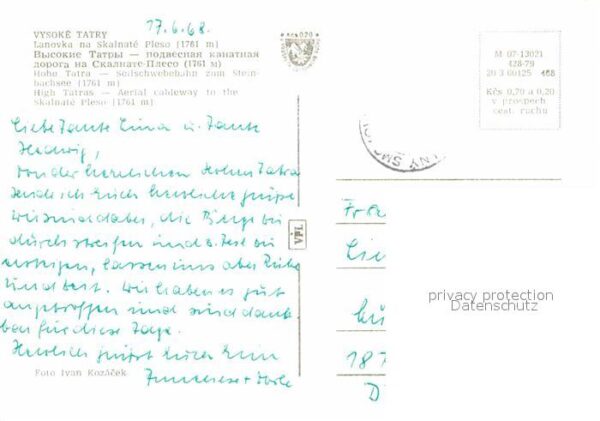 17.6.68.
VYSOKÉ TATRY
Lanovka na Skalnaté Pleso (1761 m)
Высокие Татры — подвесная канатная
дорога на Скалнате-Плесо (1761 м)
Hohe Tatra — Seilschwebebahn zum Stein-
bachsee (1761 m)
High Tatras — Aerial cableway to the
Skalnaté Pleso (1761 m)
020
M 07-13021
428-79
20 3 60125 468
Kčs 0,70 a 0,20
v prospech
cest. ruchu
Liebe Tante Lina u. Tante
Hedwig,
von der herrlichen Hohen Tatra
sende ich Euch herzliche Grüße
wir sind dabei, die Berge
durchstreifen und z. Teil
lassen uns aber Ruhe
und Zeit. Wir haben es gut
angetroffen und sind dank
bar für diese Tage.
Herzlich grüßt Euch Eure
Annerose +
VPL
Fra
Lie
187
D
privacy protection
Datenschutz
Foto Ivan Kozáček